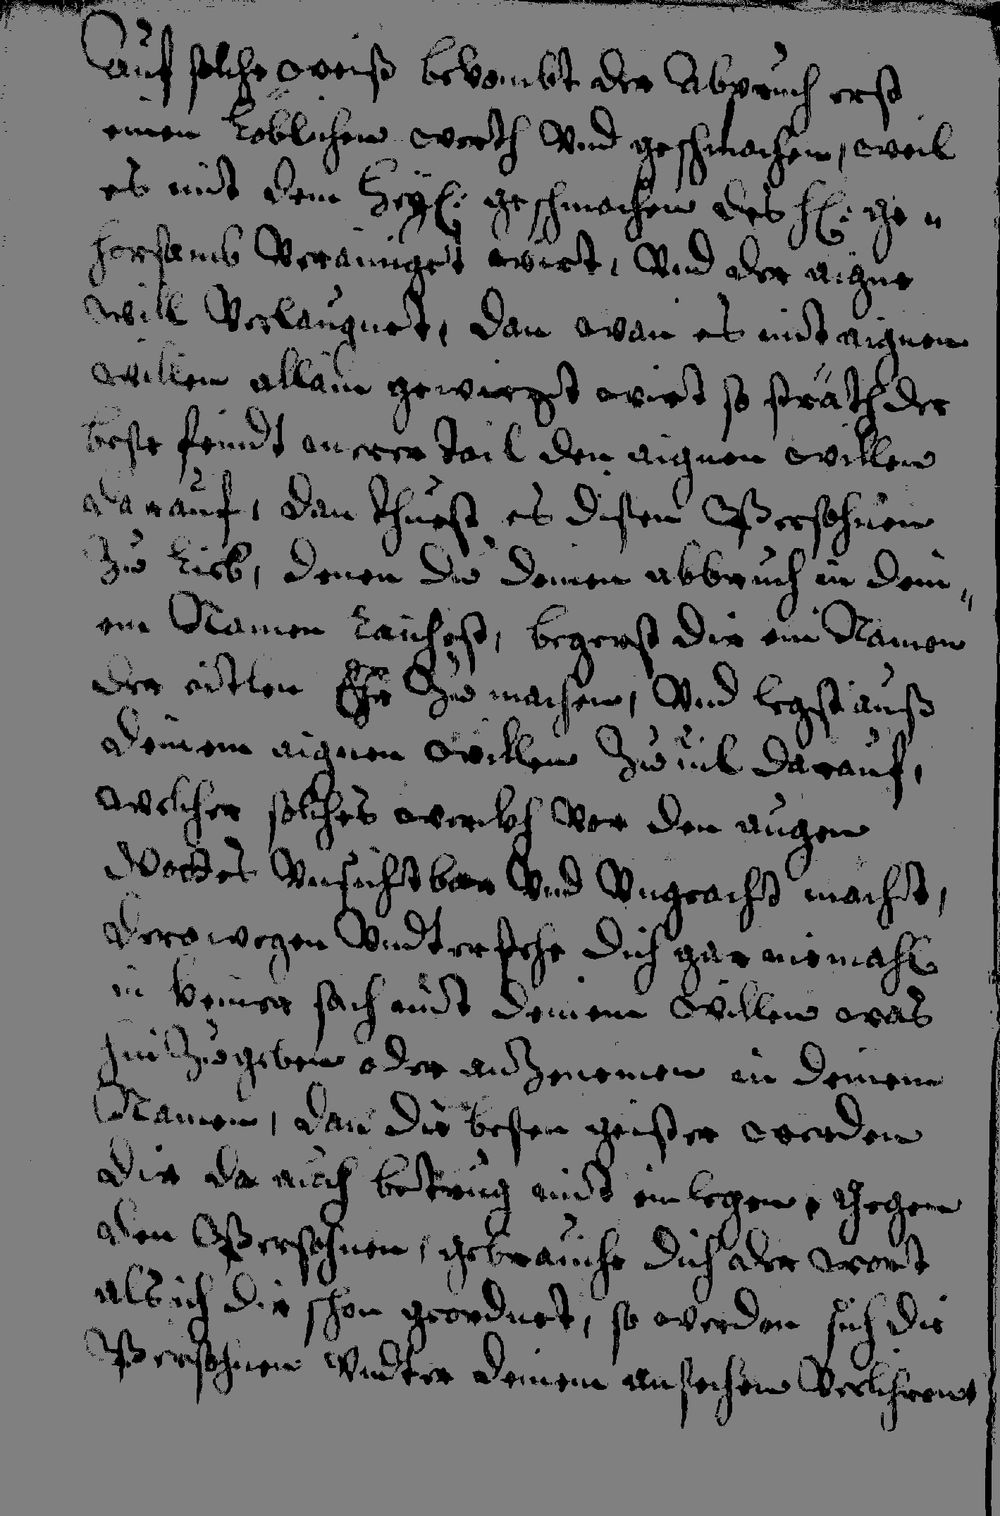 Auf solche weiß bekombt der Abpruch erst
einen Loblichen werth Vnd geschmachen, weil
es mit dem Heyl: geschmachen des hl: ge =
horsambs Verainiget wirt, Vnd der aigne
will Verlaugnet, dan wan es mit aignen
willen allain gewirgst wirt so sträth der
bese feindt merer tail den aignen willen
darauf, dan thuest es disen Persohnen
Zu Lieb, denen du deinen abbruch in dein =
em Namen Laichest, begerst dir ein Namen
der eitlen Ehr Zu machen, Vnd legst auß
deinem aignen willen Zu uil darauf,
welcher solches werkh Vor den augen
Gottes Vnsichtbar Vnd Vngeacht macht,
derowegen Vndterstehe dich gar niemahls
in keiner sach mit deinem willen was
hin Zu geben oder anZenemen in deinem
Namen, dan die besen geister werden
dir da auch betrug mit einlegen, gegen
den Persohnen, gebrauche dich der wort
als ich dir schon geordnet, so werden sich die
Persohnen Vndter deinem ansechen Verlihren